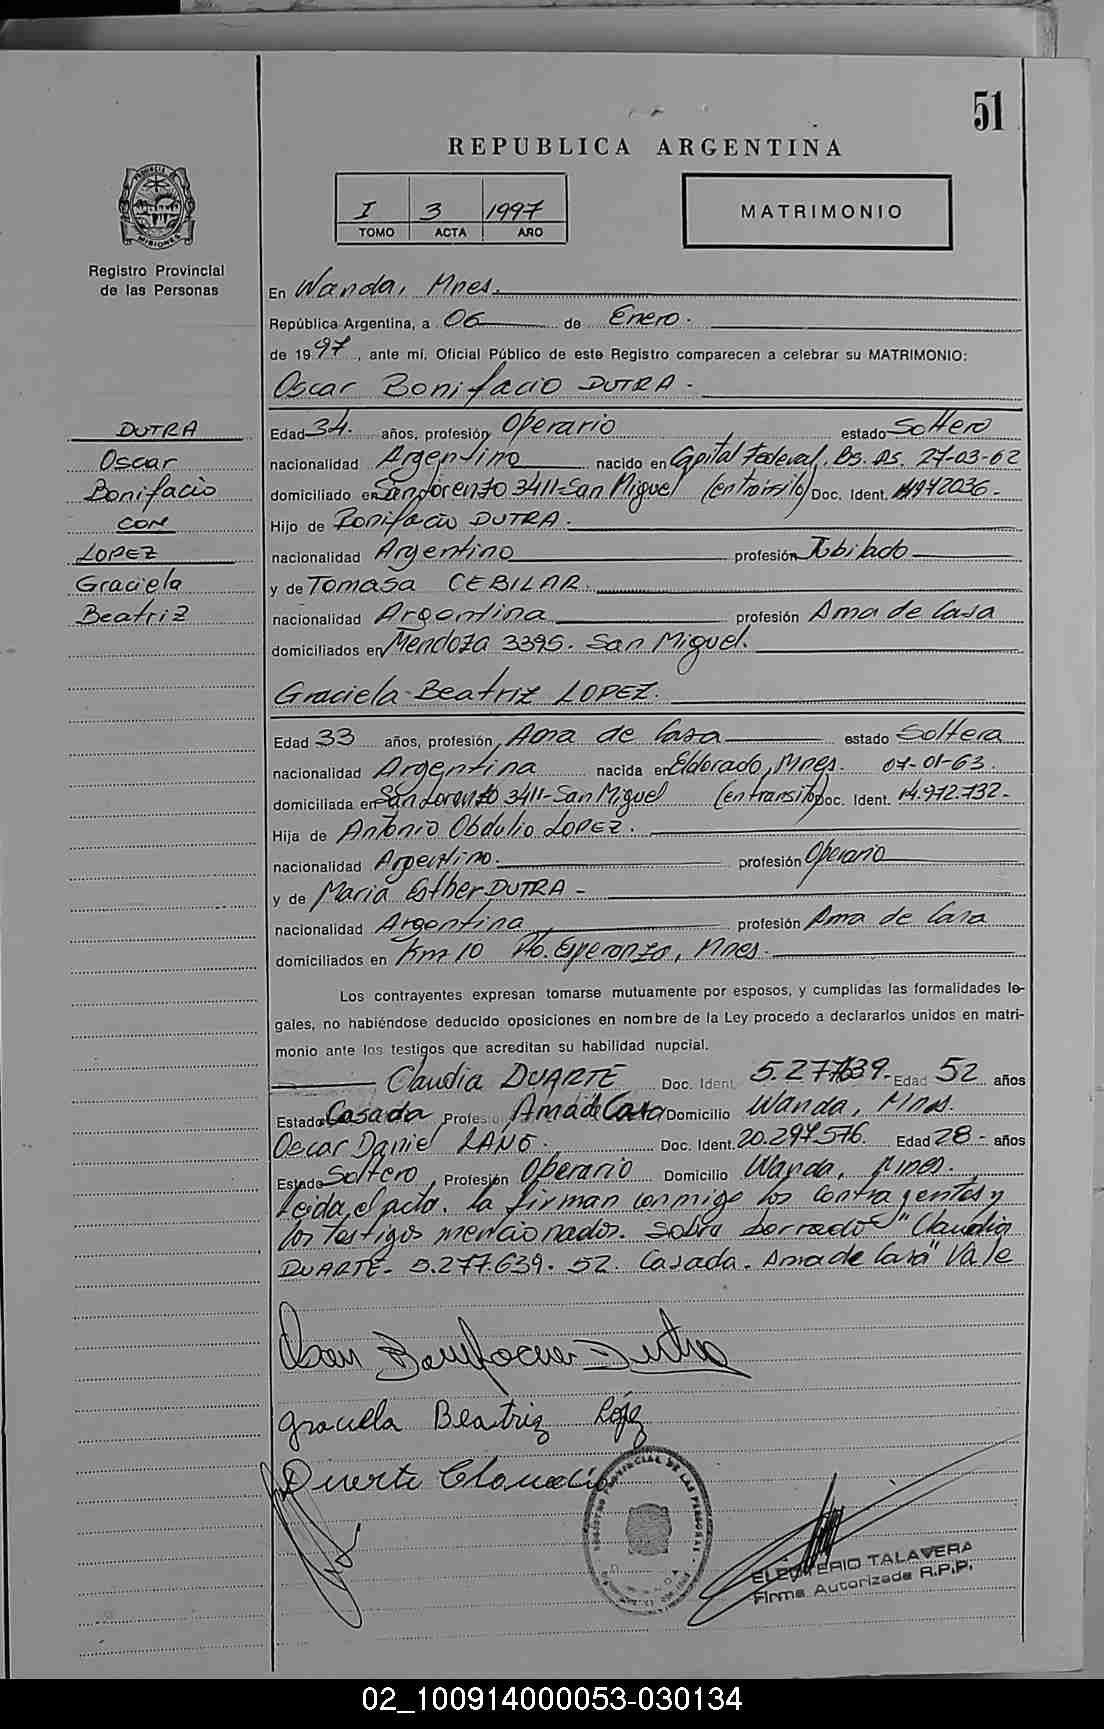 51
REPUBLICA ARGENTINA
I 3 1997
TOMO ACTA AÑO
MATRIMONIO
PROVINCIA DE
MISIONES
Registro Provincial
de las Personas
En Wanda, Mnes.
República Argentina, a 06 de Enero.
de 1997, ante mí, Oficial Público de este Registro comparecen a celebrar su MATRIMONIO:
Oscar Bonifacio DUTRA.
DUTRA
Oscar
Bonifacio
CON
LOPEZ
Graciela
Beatriz
Edad 34. años, profesión Operario estado Soltero
nacionalidad Argentino nacido en Capital Federal, Bs. As. 27-03-62
domiciliado en San Lorenzo 3411-San Miguel (en tránsito) Doc. Ident.
Hijo de Bonifacio DUTRA.
nacionalidad Argentino profesión Jubilado
y de Tomasa CEBILAR.
nacionalidad Argentina profesión Ama de Casa
domiciliados en Mendoza 3395. San Miguel.
Graciela Beatriz LOPEZ.
Edad 33 años, profesión Ama de Casa estado Soltera
nacionalidad Argentina nacida en Eldorado, Mnes. 07-01-63.
domiciliada en San Lorenzo 3411-San Miguel (en transito) Doc. Ident. 14.972.732-
Hija de Antonio Obdulio LOPEZ.
nacionalidad Argentino. profesión Operario
y de Maria Esther DUTRA -
nacionalidad Argentina profesión Ama de Casa
domiciliados en Km 10 Pto. Esperanza, Mnes.
Los contrayentes expresan tomarse mutuamente por esposos, y cumplidas las formalidades le-
gales, no habiéndose deducido oposiciones en nombre de la Ley procedo a declararlos unidos en matri-
monio ante los testigos que acreditan su habilidad nupcial.
Claudia DUARTE Doc. Ident. 5.277.639- Edad 52 años
Estado Casada Profesión Ama de Casa Domicilio Wanda, Mnes.
Oscar Daniel Doc. Ident. 20.297.576. Edad 28- años
Estado Soltero, Profesión Operario Domicilio Wanda, Mnes.
Leida el acta, la firman conmigo los contrayentes y
los testigos mencionados. Sobre borrado "Claudia
DUARTE- 5.277.639. 52. Casada. Ama de Casa" Vale
Oscar Bonifacio Dutra
Graciela Beatriz López
Duarte Claudia
REGISTRO PROVINCIAL DE LAS PERSONAS
ELEUTERIO TALAVERA
Firma Autorizada R.P.P.
02_100914000053-030134